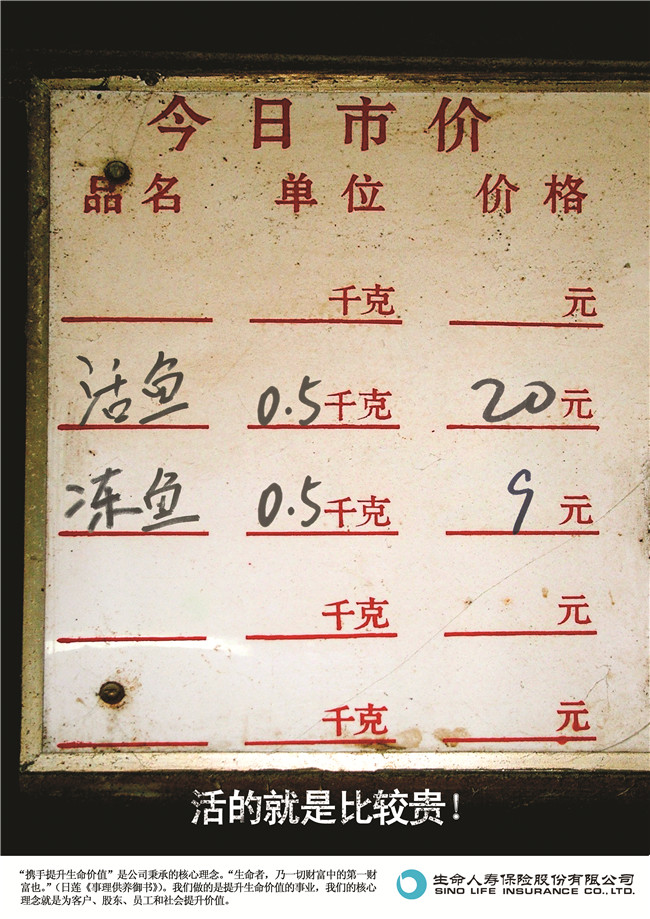 今日市价
品名 单位 价格
千克 元
活鱼 0.5千克 20元
冻鱼 0.5千克 9元
千克 元
千克 元
活的就是比较贵！
“携手提升生命价值”是公司秉承的核心理念。“生命者，乃一切财富中的第一财
富也。”（日莲《事理供养御书》）。我们做的是提升生命价值的事业，我们的核心
理念就是为客户、股东、员工和社会提升价值。
生命人寿保险股份有限公司
SINO LIFE INSURANCE CO.,LTD.